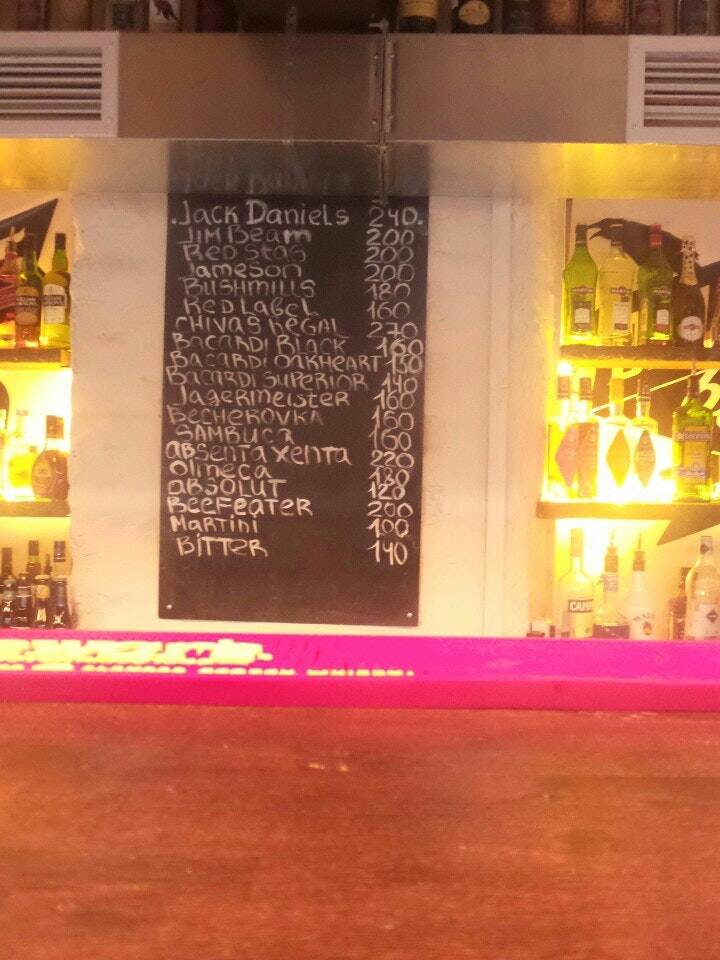 .Jack Daniels 240.
JIM Beam 200
Red Stag 200
Jameson 200
BUSHMILLS 180
Red Label 160
CHIVAS REGAL 270
Bacardi Black 160
Bacardi OAKHEART 150
Bacardi SUPERIOR 140
Jagermeister 160
Becherovka 160
SAMBUCA 160
ABSENTA XENTA 220
Olmeca 180
ABSOLUT 120
BEEFEATER 200
Martini 100
BITTER 140